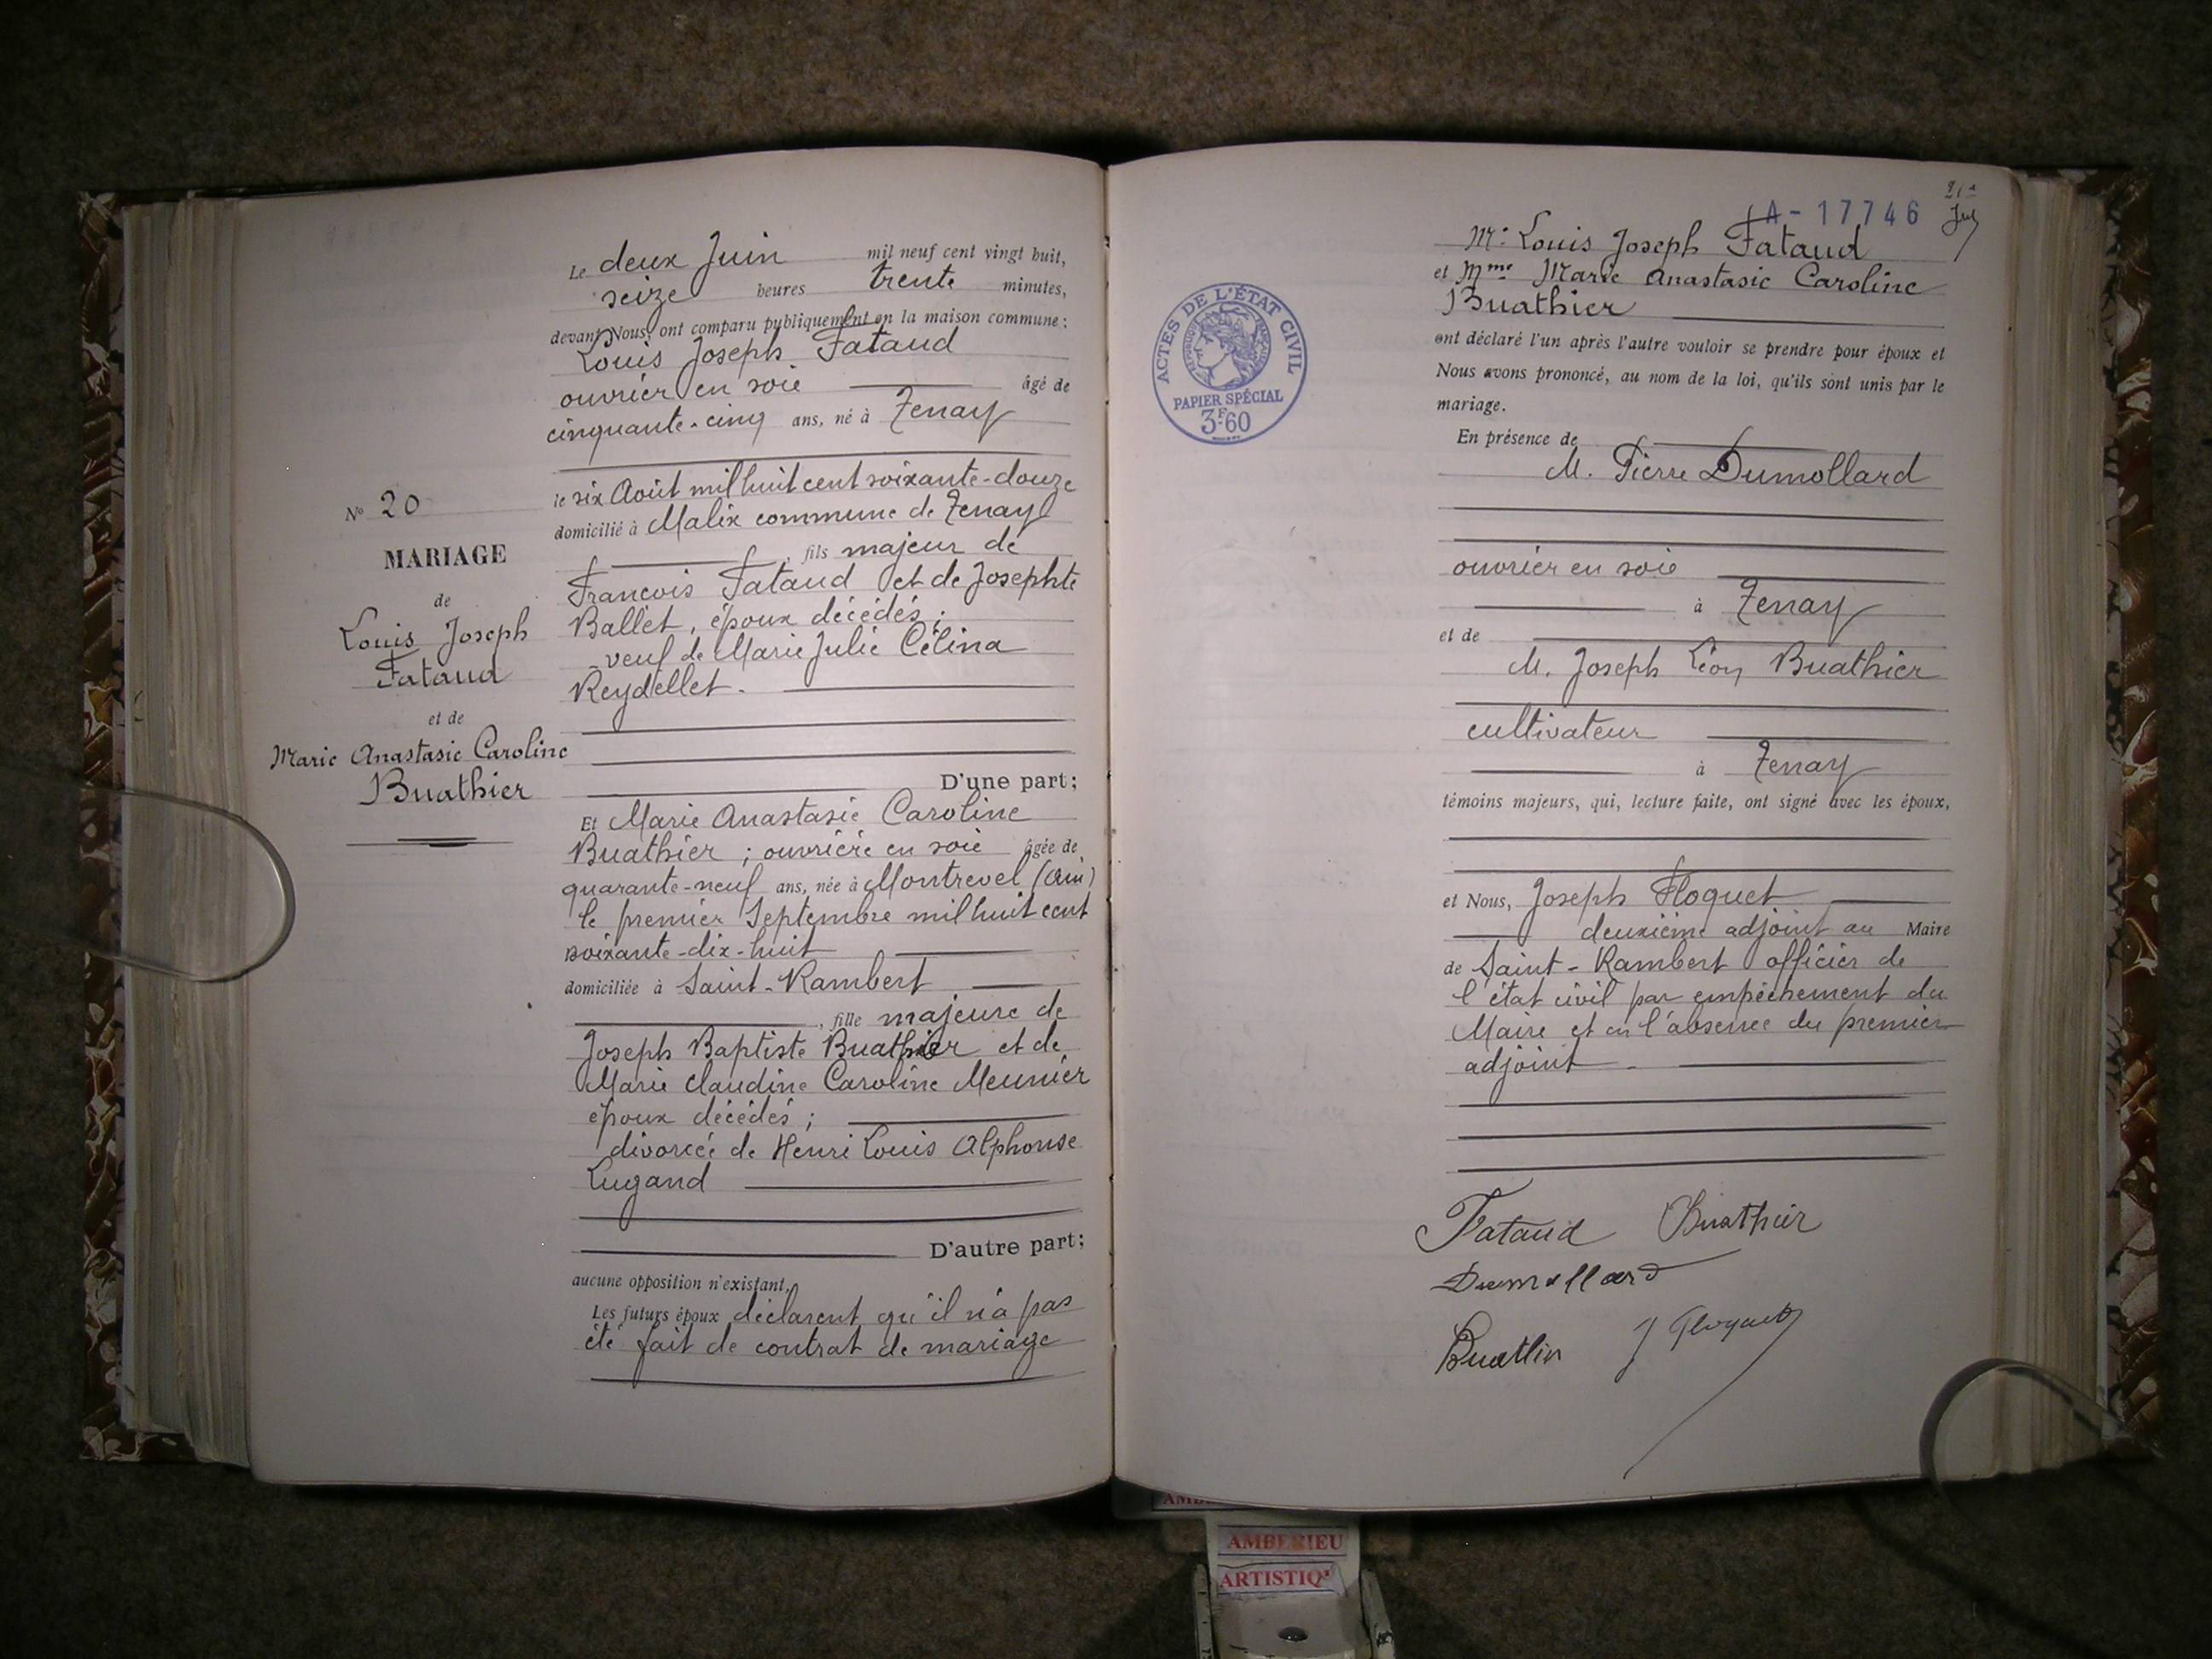 Nº 20
MARIAGE
de
Louis Joseph
Fataud
et de
Marie Anastasie Caroline
Buathier
Le deux Juin mil neuf cent vingt huit,
seize heures trente minutes,
devant Nous, ont comparu publiquement en la maison commune :
Louis Joseph Fataud
ouvrier en soie âgé de
cinquante-cinq ans, né à Tenay
le six Août mil huit cent soixante-douze
domicilié à Malix commune de Tenay
, fils majeur de
Francois Fataud et de Josephte
Ballet, époux décédés ;
veuf de Marie Julie Célina
Reydellet.
D'une part;
Et Marie Anastasie Caroline
Buathier ; ouvrière en soie âgée de
quarante-neuf ans, née à Montrevel (Ain)
le premier Septembre mil huit cent
soixante-dix-huit
domiciliée à Saint-Rambert
, fille majeure de
Joseph Baptiste Buathier et de
Marie Claudine Caroline Meunier
époux décédés ;
divorcée de Henri Louis Alphonse
Lugand
D'autre part;
aucune opposition n'existant,
Les futurs époux déclarent qu'il n'a pas
été fait de contrat de mariage
A-17746
ACTES DE L'ÉTAT CIVIL
RÉPUBLIQUE FRANÇAISE
PAPIER SPÉCIAL
3F.60
Mr. Louis Joseph Fataud
et Mme Marie Anastasie Caroline
Buathier
ont déclaré l'un après l'autre vouloir se prendre pour époux et
Nous avons prononcé, au nom de la loi, qu'ils sont unis par le
mariage.
En présence de
M. Pierre Dumollard
ouvrier en soie
à Tenay
et de
M. Joseph Léon Buathier
cultivateur
à Tenay
témoins majeurs, qui, lecture faite, ont signé avec les époux,
et Nous, Joseph Floquet
deuxième adjoint au Maire
de Saint-Rambert officier de
l'état civil par empêchement du
Maire et en l'absence du premier
adjoint.
Fataud Buathier
Dumollard
Buathier
AMBERIEU
ARTISTIQ